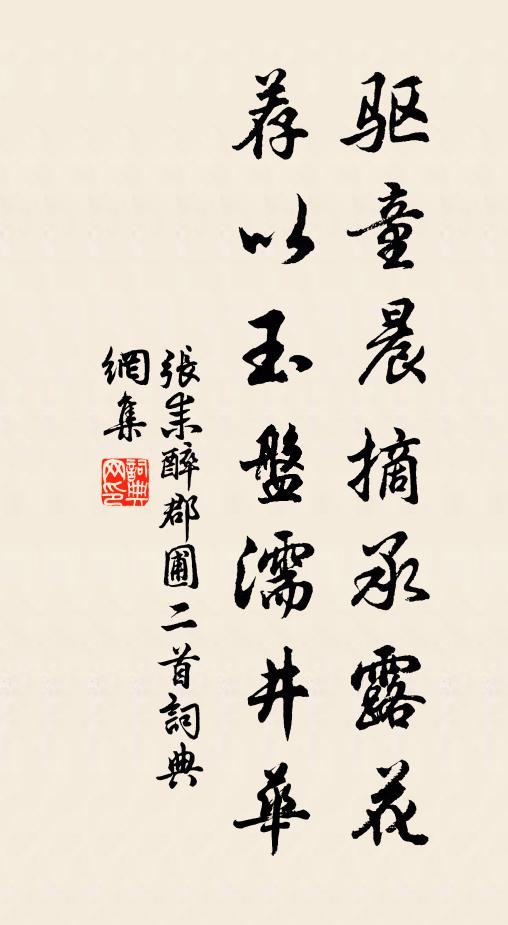 驱童晨摘承露花
荐以玉盤濡井華
張耒醉郡圃二首詞典
網集
詞典网印